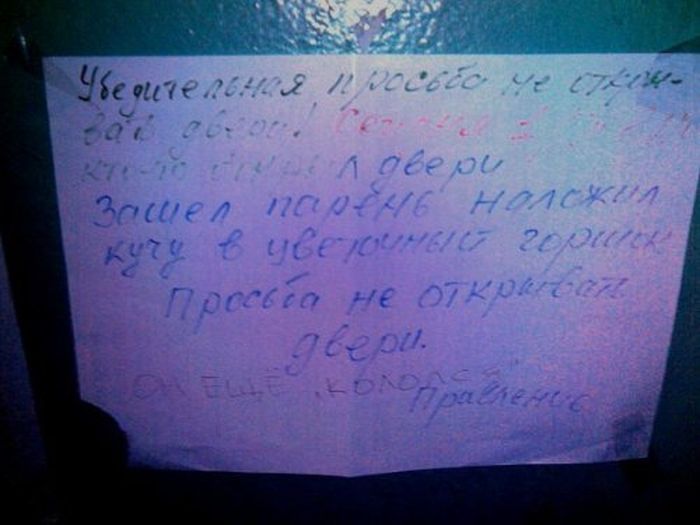 Убедительная просьба не откры-
вать двери! Сегодня
кто-то открыл двери
Зашел парень наложил
кучу в цветочный горшок
Просьба не открывать
двери.
ОН ЕЩЁ КОЛОЛСЯ
Правление